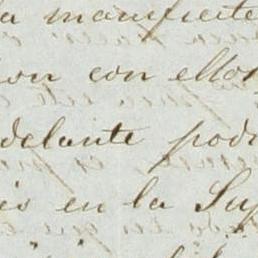 a manifieste
ion con ellos
adelante podr
is en la Sup